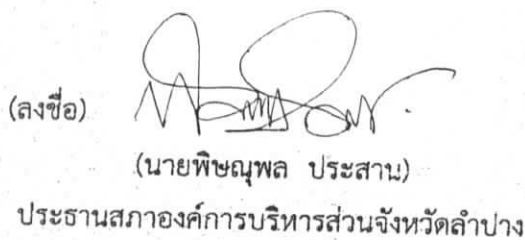 (ลงชื่อ)
(นายพิษณุพล ประสาน)
ประธานสภาองค์การบริหารส่วนจังหวัดลำปาง